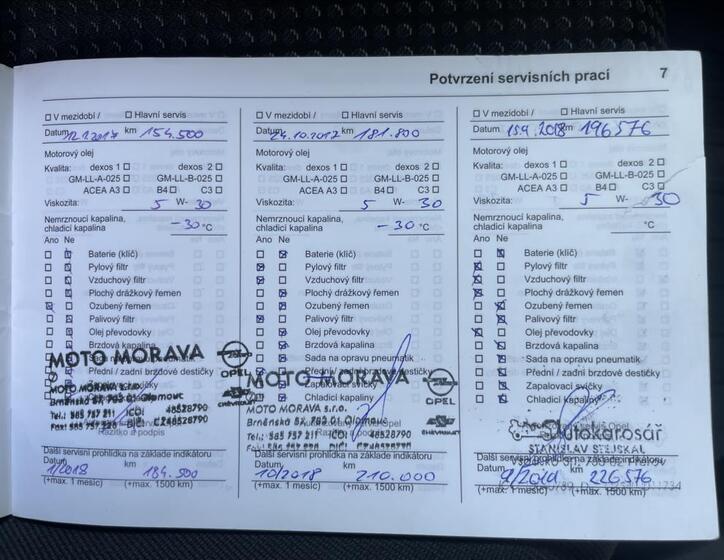 Potvrzení servisních prací 7
V mezidobí / Hlavní servis
Datum 12.1.2017 km 154.500
Motorový olej
Kvalita: dexos 1 dexos 2
GM-LL-A-025 GM-LL-B-025
ACEA A3 B4 C3
Viskozita: 5 W- 30
Nemrznoucí kapalina,
chladicí kapalina -30 °C
Ano Ne
Baterie (klíč)
Pylový filtr
Vzduchový filtr
Plochý drážkový řemen
Ozubený řemen
Palivový filtr
Olej převodovky
Brzdová kapalina
MOTO MORAVA
OPEL
MOTO MORAVA s.r.o.
Brněnská 57, 783 01 Olomouc
Tel.: 585 757 211 IČO: 48528790
CHEVROLET
Razítko a podpis
Další servisní prohlídka na základě indikátoru
Datum km
1/2018 184.500
(+max. 1 měsíc) (+max. 1500 km)
V mezidobí / Hlavní servis
Datum 24.10.2017 km 181.800
Motorový olej
Kvalita: dexos 1 dexos 2
GM-LL-A-025 GM-LL-B-025
ACEA A3 B4 C3
Viskozita: 5 W- 30
Nemrznoucí kapalina,
chladicí kapalina -30 °C
Ano Ne
Baterie (klíč)
Pylový filtr
Vzduchový filtr
Plochý drážkový řemen
Ozubený řemen
Palivový filtr
Olej převodovky
Brzdová kapalina
Sada na opravu pneumatik
Přední / zadní brzdové destičky
Zapalovací svíčky
Chladicí kapaliny
MOTO MORAVA
OPEL
MOTO MORAVA s.r.o.
Brněnská 57, 783 01 Olomouc
Tel.: 585 757 211 IČO: 48528790
CHEVROLET
Další servisní prohlídka na základě indikátoru
Datum km
10/2018 210.000
(+max. 1 měsíc) (+max. 1500 km)
V mezidobí / Hlavní servis
Datum 15.9.2018 km 196576
Motorový olej
Kvalita: dexos 1 dexos 2
GM-LL-A-025 GM-LL-B-025
ACEA A3 B4 C3
Viskozita: 5 W- 30
Nemrznoucí kapalina,
chladicí kapalina °C
Ano Ne
Baterie (klíč)
Pylový filtr
Vzduchový filtr
Plochý drážkový řemen
Ozubený řemen
Palivový filtr
Olej převodovky
Brzdová kapalina
Sada na opravu pneumatik
Přední / zadní brzdové destičky
Zapalovací svíčky
Chladicí kapaliny
Autokarosář
STANISLAV STEJSKAL
Další servisní prohlídka na základě indikátoru
Datum km
226576
(+max. 1 měsíc) (+max. 1500 km)